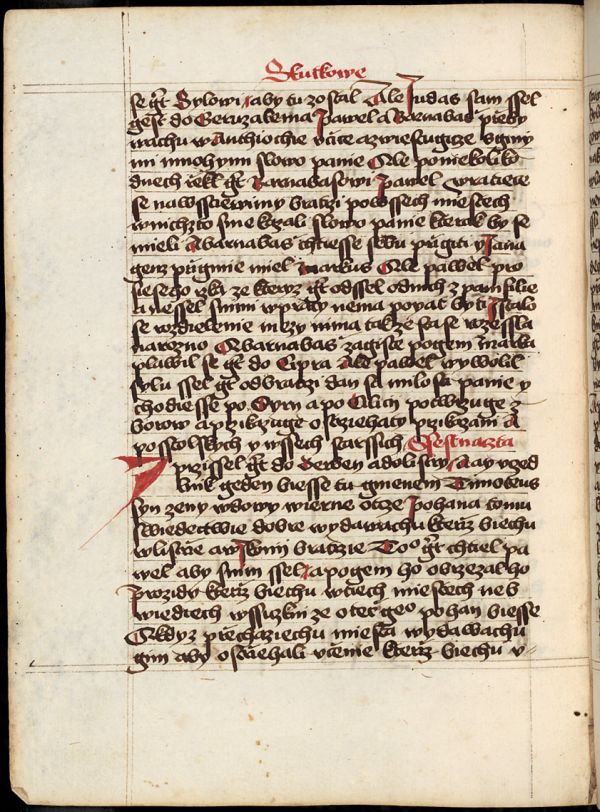 Skutkowe
se gt Sylowi aby tu zostal Ale Judas sam ssel
gest do Geruzalema Pawel a Barnabas przeby
wachu w Anthiochie vczice a zwiestugicze s giny
mi mnohymi slowo panie Ale po niekoliko
dnech rzekl gt Barnabasowi Pawel Wratiece
se nawsstiewimy bratrzi po wssech miestech
w nichzto sme kazali slowo panie kterak by se
mieli A barnabas chtiesse sebu pugiti y Jana
genz prigmie miel Markus Ale pawel pro
siesse ho ze kteryz gt odssel od nich z pamfilie
a nessel s nimi w praczy nema powat byti I stalo
se rozdielenie mezy nima takze sta se rozessla
narozno A barnabas zagiste pogem marka
pluwil se gt do Cipra Ale pawel wywolil
sylu ssel gt od bratrzi dan sa milosti panie y
chodiesse po Syrii a po Cilicii potwrzuge z
borow a przikazuge ostrziehaty przikazani A
posstolskych y wssech starssich Ssestnazta
przissel gt do Derben a do listry A ay vczed
lnik geden biesse tu gmenem Timotheus
syn zeny wdowy wierne otcze pohana tomu
swiedectwie dobre wydawachu kterziz biechu
w listrze a w ikonii bratrzie Toº gt chtiel pa
wel aby s nim ssel a pogem ho obrzezal ho
pro zidy kterziz biechu w tiech miestech neb
wiediech wssickni ze otec geº pohan biesse
A kdyz przechaziechu miesta wydawachu
gim aby ostrziehali vczenie kterziz biechu v-